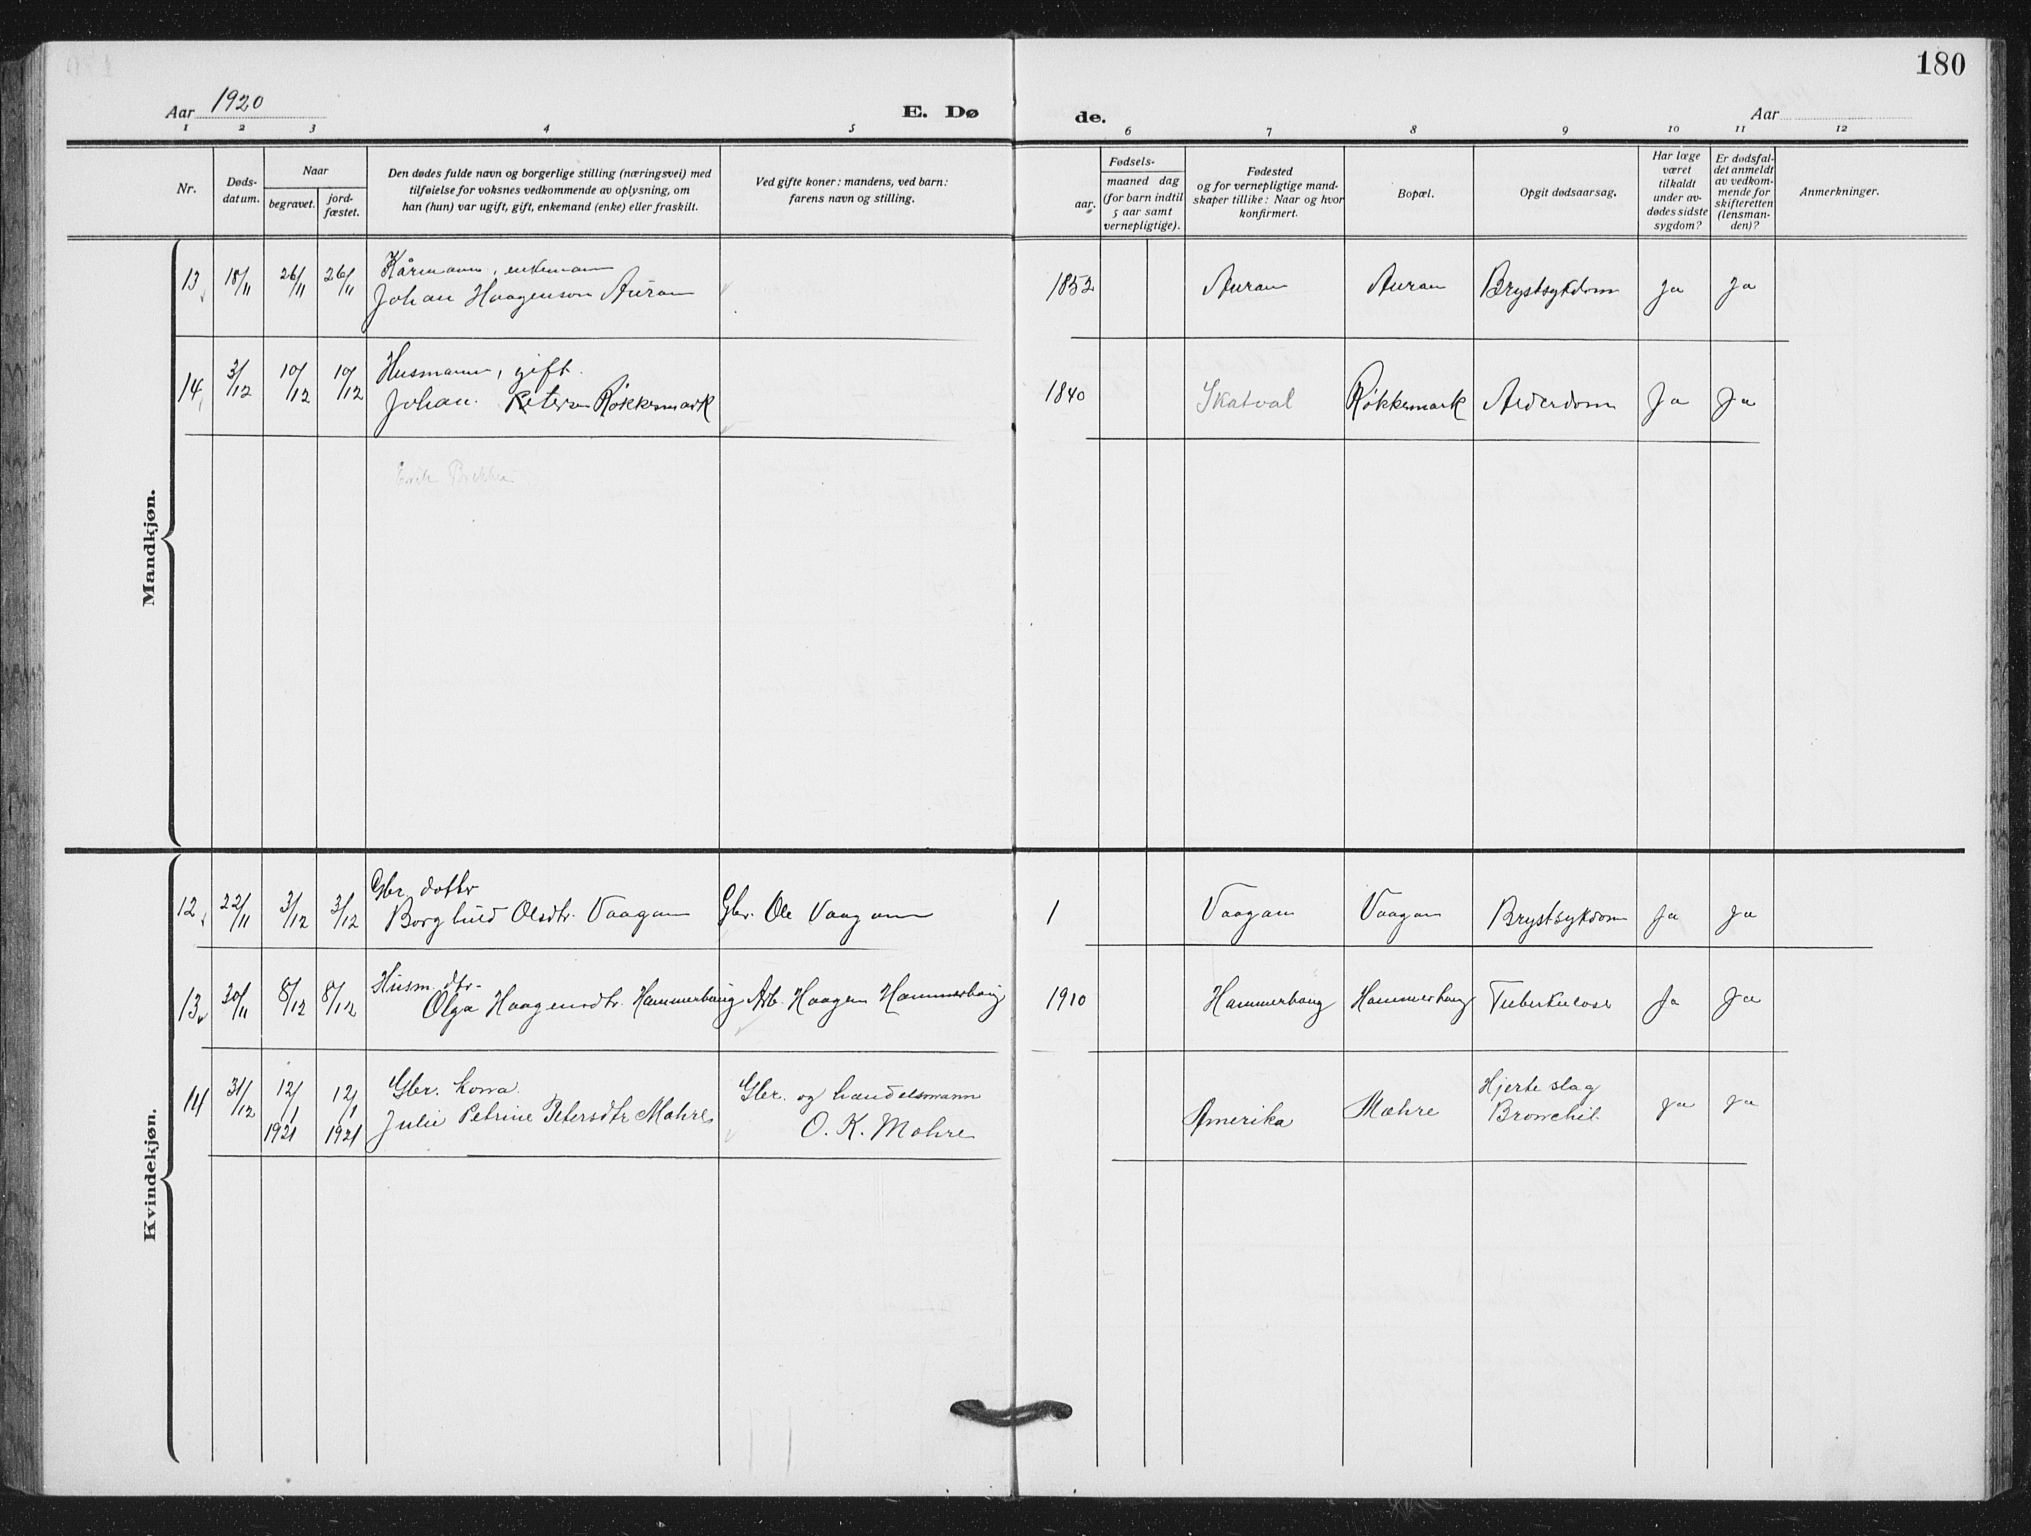 180
Aar 1920
E. Dø
de.
Aar
1 2 3 4 5 6 7 8 9 10 11 12
Nr.
Døds-
datum.
Naar
begravet.
jord-
fæstet.
Den dødes fulde navn og borgerlige stilling (næringsvei) med
tilføielse for voksnes vedkommende av oplysning, om
han (hun) var ugift, gift, enkemand (enke) eller fraskilt.
Ved gifte koner: mandens, ved barn:
farens navn og stilling.
Fødsels-
aar.
maaned dag
(for barn indtil
5 aar samt
vernepligtige).
Fødested
og for vernepligtige mand-
skaper tillike: Naar og hvor
konfirmert.
Bopæl.
Opgit dødsaarsag.
Har læge
været
tilkaldt
under av-
dødes sidste
sygdom?
Er dødsfal-
det anmeldt
av vedkom-
mende for
skifteretten
(lensman-
den)?
Anmerkninger.
Mandkjøn.
Kårmann, enkemann
13 18/11 26/11 26/11 Johan Haagenson Auran 1852 Auran Auran Brystsykdom Ja Ja
Husmann, gift.
14 3/12 10/12 10/12 Johan Petersen Røkkesmark 1840 Skatval Røkkesmark Alderdom Ja Ja
Kvindekjøn.
Gbr. dotter
12 22/11 3/12 3/12 Borghild Olsdtr. Vaagan Gbr. Ole Vaagan 1 Vaagan Vaagan Brystsykdom Ja Ja
Husm. dtr.
13 30/11 8/12 8/12 Olga Haagensdtr. Hammerhaug Arb. Haagen Hammerhaug 1910 Hammerhaug Hammerhaug Tuberkulose Ja Ja
Gbr. kona Gbr. og handelsmann Hjerteslag
14 31/12 12/1 1921 12/1 1921 Julie Petrine Petersdtr Mæhre O. K. Mæhre Amerika Mæhre Bronchit Ja Ja